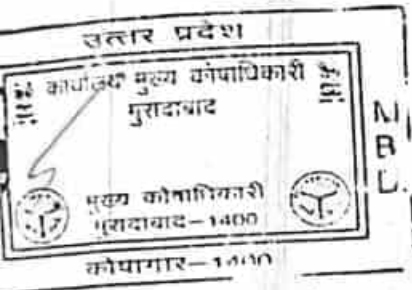 उत्तर प्रदेश
कार्यालय मुख्य कोषाधिकारी
मुरादाबाद
मुख्य कोषाधिकारी
मुरादाबाद–1400
कोषागार–1400
M
B
D.